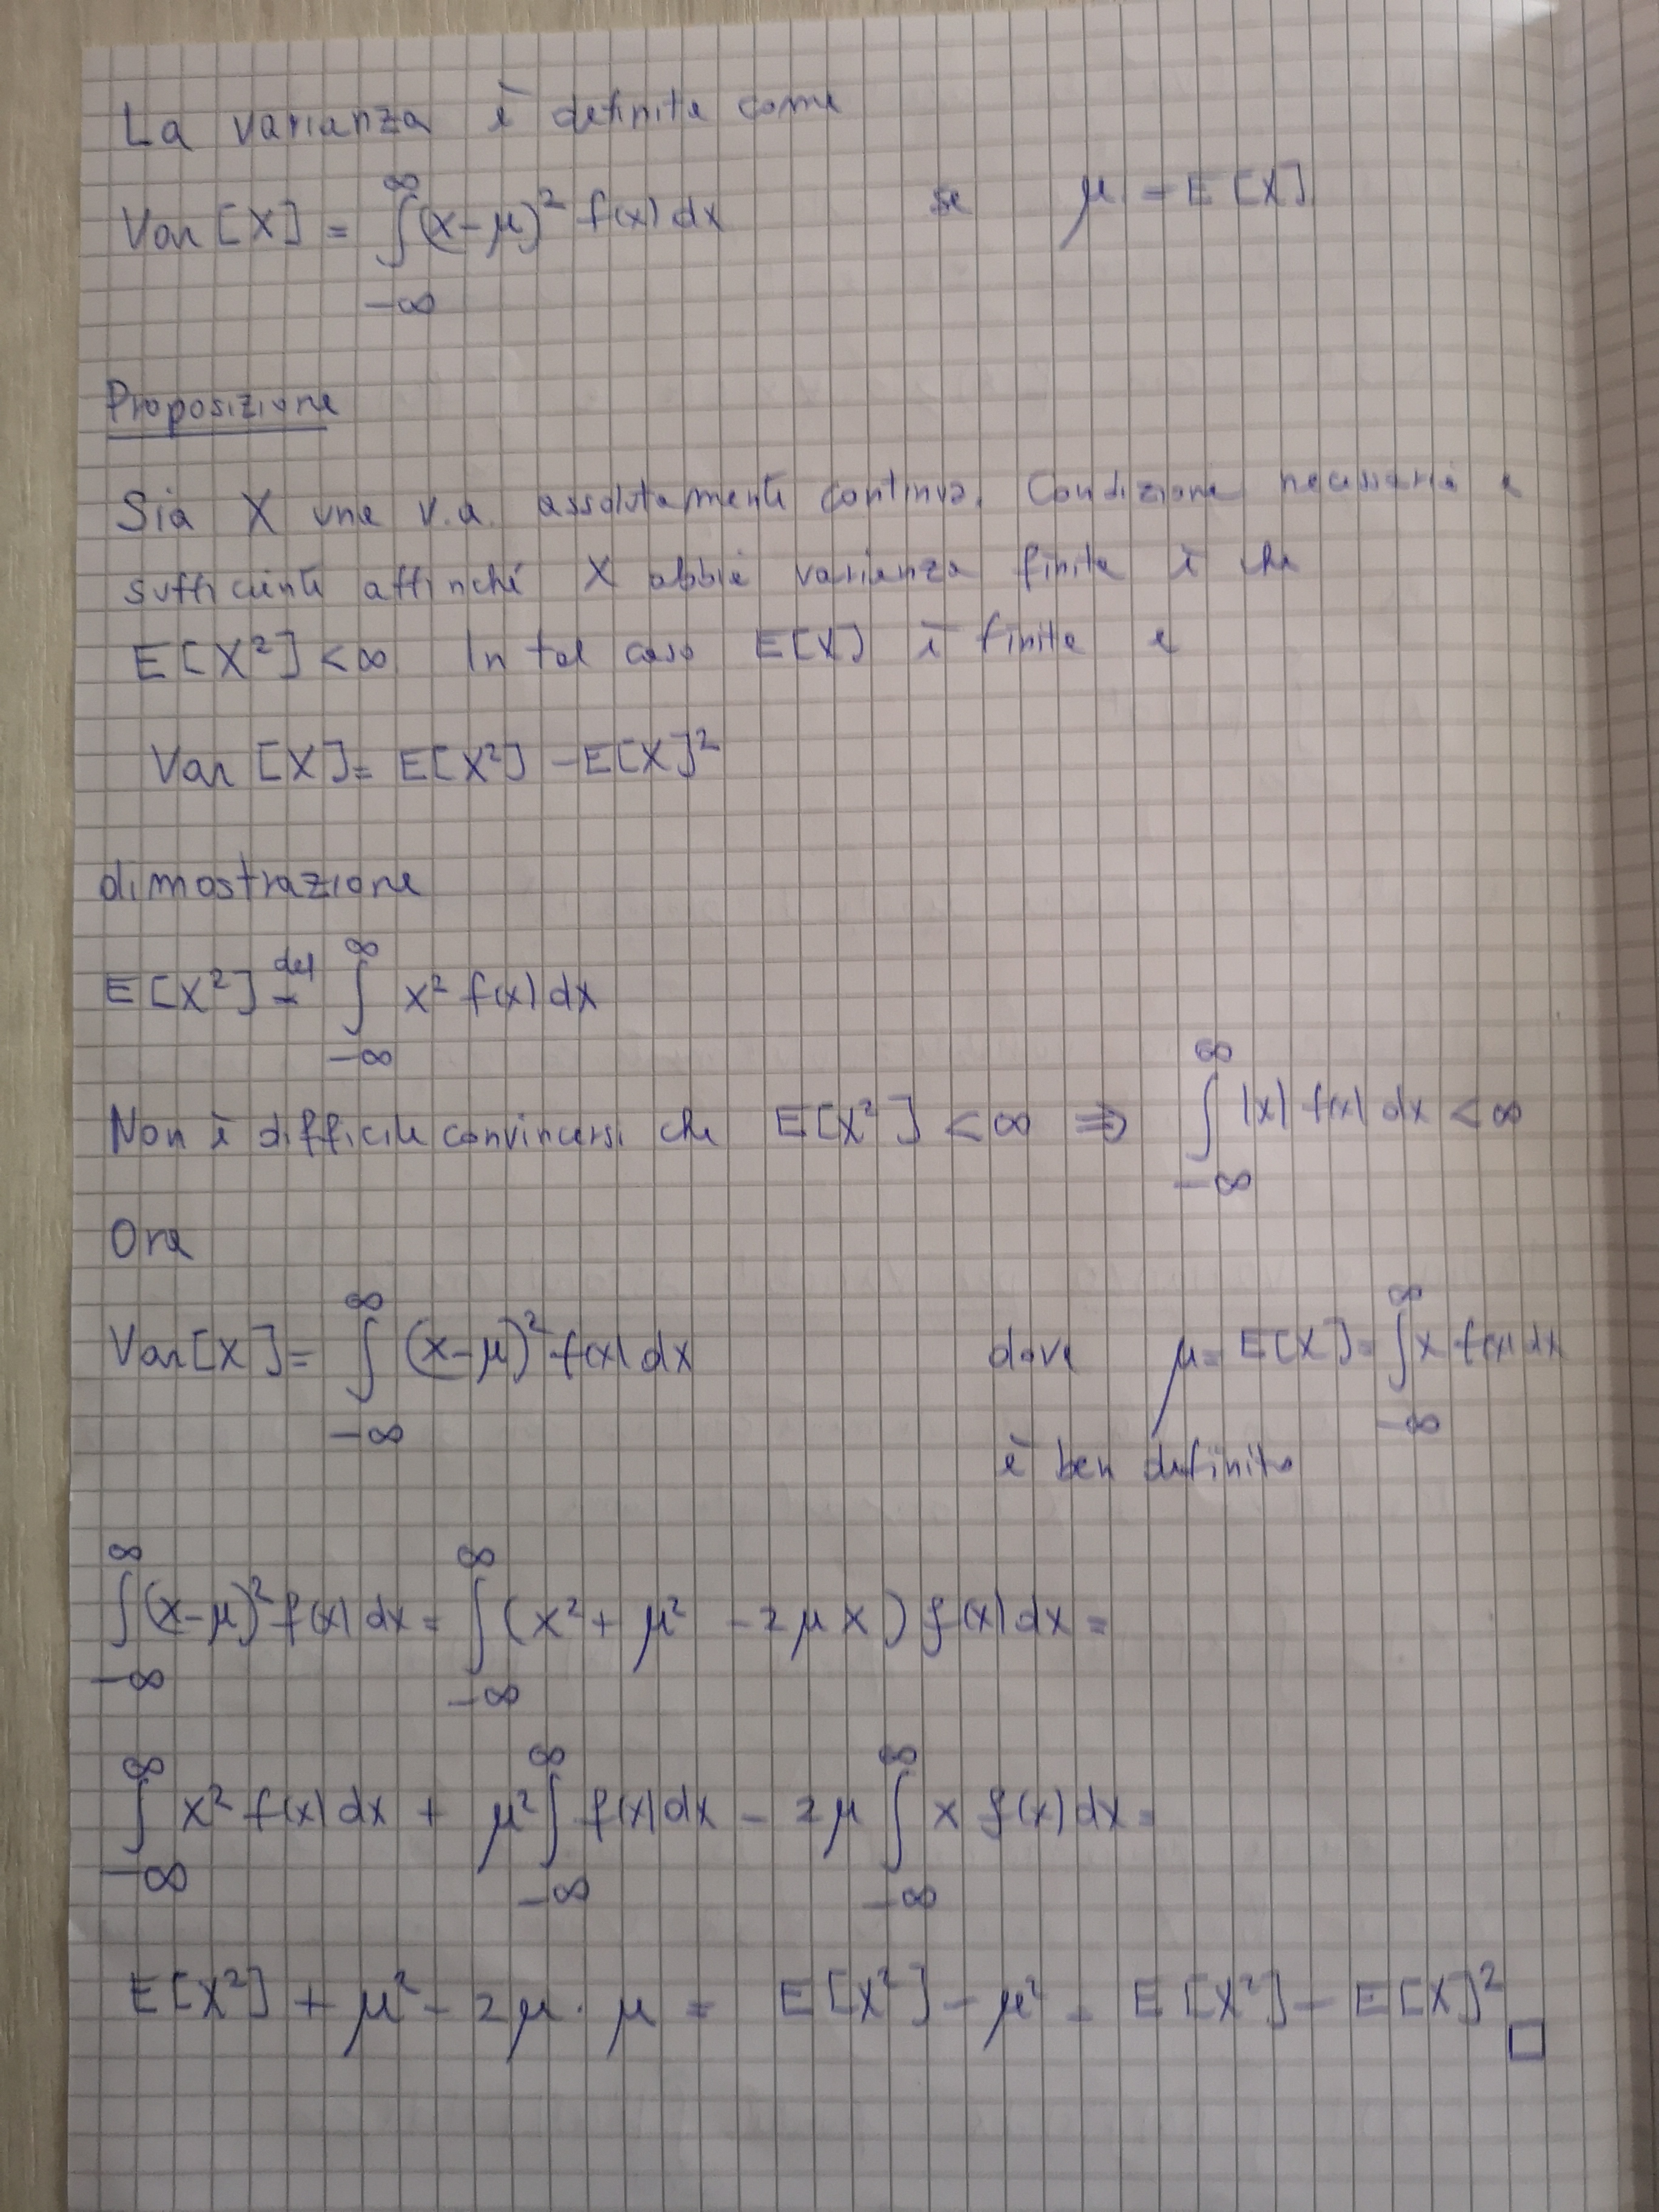 La varianza è definita come
Var[X] = ∫_{-∞}^{∞} (x-μ)² f(x) dx se μ = E[X]
Proposizione
Sia X una v.a. assolutamente continua. Condizione necessaria e
sufficiente affinché X abbia varianza finita è che
E[X²] < ∞ In tal caso E[X] è finita e
Var[X] = E[X²] - E[X]²
dimostrazione
E[X²] =^{def} ∫_{-∞}^{∞} x² f(x) dx
Non è difficile convincersi che E[X²] < ∞ ⇒ ∫_{-∞}^{∞} |x| f(x) dx < ∞
Ora
Var[X] = ∫_{-∞}^{∞} (x-μ)² f(x) dx dove μ = E[X] = ∫_{-∞}^{∞} x f(x) dx
è ben definito
∫_{-∞}^{∞} (x-μ)² f(x) dx = ∫_{-∞}^{∞} (x² + μ² - 2μx) f(x) dx =
∫_{-∞}^{∞} x² f(x) dx + μ² ∫_{-∞}^{∞} f(x) dx - 2μ ∫_{-∞}^{∞} x f(x) dx =
E[X²] + μ² - 2μ · μ = E[X²] - μ² = E[X²] - E[X]² □